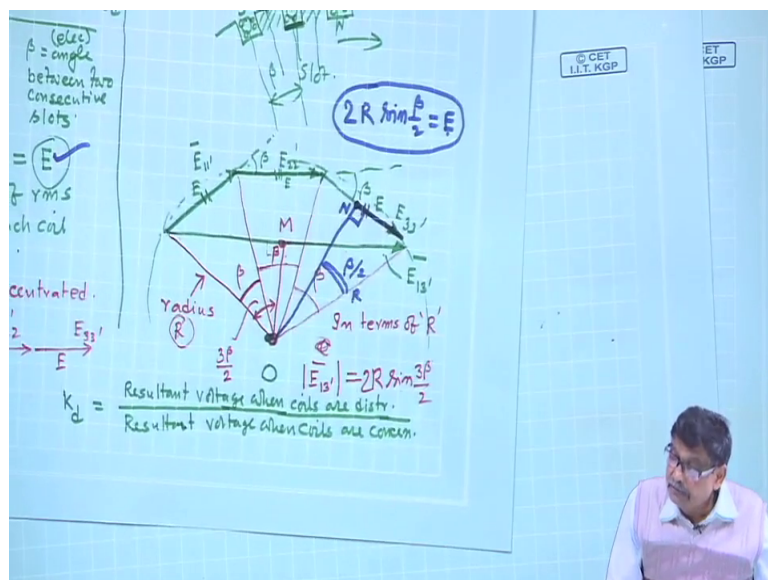 (elec)
β = angle
between two
consecutive
slots.
= E
of rms
ch coil
centrated.
E₃₃'
E
β
Slot.
N
2R sin β/2 = E
© CET
I.I.T. KGP
ET
KGP
E̅₁₁'
β
E₂₂'
E
E
β
E
E₃₃'
N
M
β
β
β
β/2
R
E̅₁₃'
radius
R
3β/2
O
In terms of 'R'
|E̅₁₃'| = 2R sin 3β/2
K_d = Resultant voltage when coils are distr.
Resultant voltage when coils are concen.